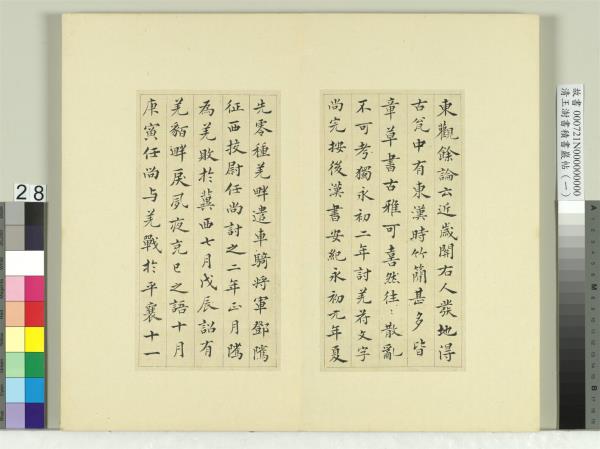 東觀餘論云近歲關右人發地得
古瓮中有東漢時竹簡甚多皆
章草書古雅可喜然往〻散亂
不可考獨永初二年討羌符文字
尚完按後漢書安紀永初元年夏
先零種羌畔遣車騎將軍鄧隲
征西校尉任尚討之二年正月隲
為羌敗於冀西七月戊辰詔有
羌貊畔戾夙夜克己之語十月
庚寅任尚与羌戰於平襄十一
故書 000721N000000000
清王澍書積書巖帖（一）
28